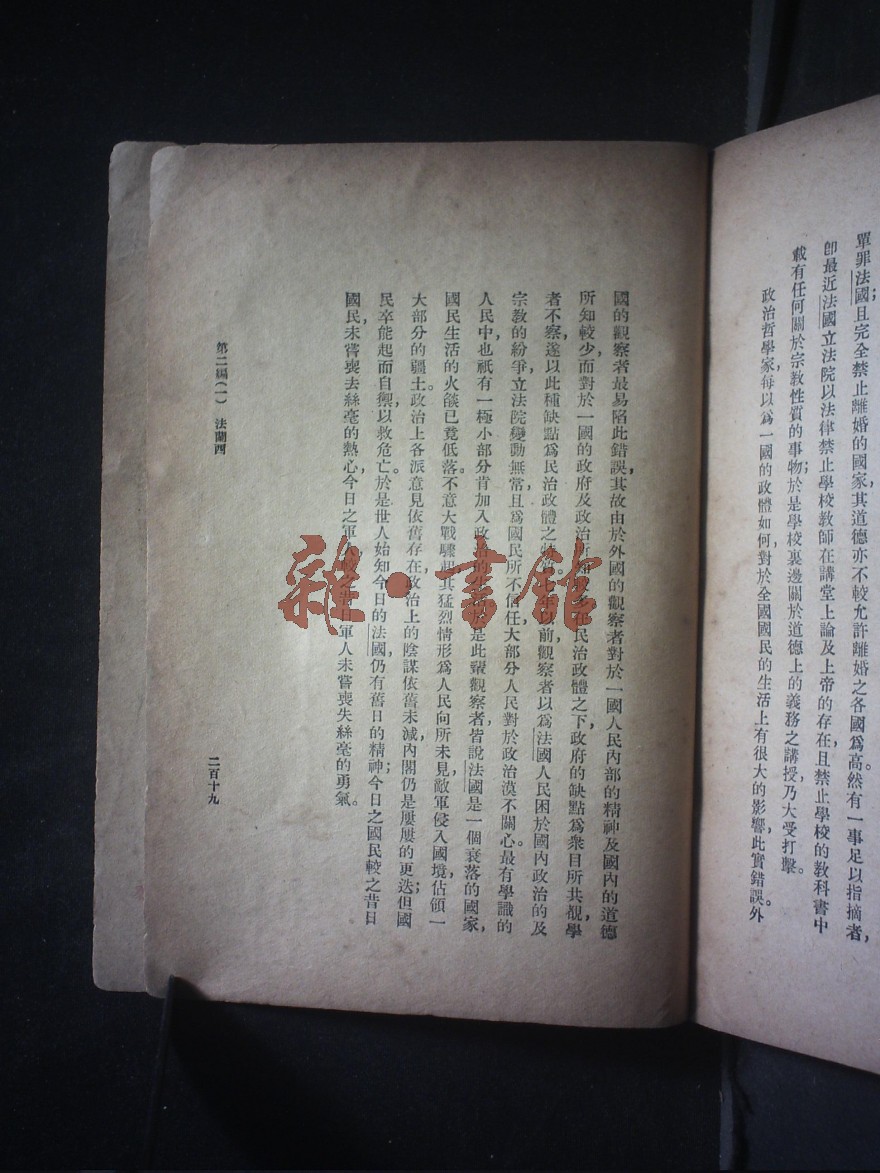 單罪法國;且完全禁止離婚的國家,其道德亦不較允許離婚之各國爲高。然有一事足以指摘者,
卽最近法國立法院以法律禁止學校教師在講堂上論及上帝的存在,且禁止學校的教科書中
載有任何關於宗教性質的事物;於是學校裏邊關於道德上的義務之講授,乃大受打擊。
政治哲學家,每以爲一國的政體如何,對於全國國民的生活上有很大的影響,此實錯誤。外
國的觀察者最易陷此錯誤,其故由於外國的觀察者對於一國人民內部的精神及國內的道德
所知較少,而對於一國的政府及政治所知較多。在民治政體之下,政府的缺點爲衆目所共覩,學
者不察,遂以此種缺點爲民治政體之特質。七年以前,觀察者以爲法國人民困於國內政治的及
宗教的紛爭,立法院變動無常,且爲國民所不信任,大部分人民對於政治漠不關心。最有學識的
人民中也祇有一極小部分肯加入政治的生活,於是此輩觀察者皆說法國是一個衰落的國家,
國民生活的火燄已竟低落。不意大戰驟起,其猛烈情形爲人民向所未見,敵軍侵入國境,佔領一
大部分的疆土。政治上各派意見依舊存在,政治上的陰謀依舊未減,內閣仍是屢屢的更迭;但國
民卒能起而自禦,以救危亡。於是世人始知今日的法國,仍有舊日的精神;今日之國民較之昔日
國民,未嘗喪去絲毫的熱心,今日之軍人較之昔日軍人未嘗喪失絲毫的勇氣。
第二編(一) 法蘭西
二百十九
雜·書館